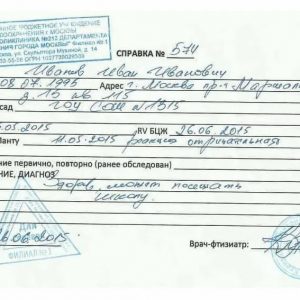 ДЖЕТНОЕ УЧРЕЖДЕНИЕ
ЗДРАВООХРАНЕНИЯ г. МОСКВЫ
ПОЛИКЛИНИКА №212 ДЕПАРТАМЕНТА
НИЯ ГОРОДА МОСКВЫ" Филиал № 1
ква, ул. Скульптора Мухиной, д. 14
СПРАВКА № 574
Иванов Иван Иванович
08.07.1995 Адрес г. Москва пр-т Маршала
д. 15 кв. 115
сад ГОУ СОШ № 1315
05.2015 RV БЦЖ 26.06.2015
Манту 11.05.2015 реакция отрицательная
ние первично, повторно (ранее обследован)
НИЕ, ДИАГНОЗ Здоров, может посещать
школу.
26.06.2015
Врач-фтизиатр:
ДЛЯ
ФИЛИАЛ №1